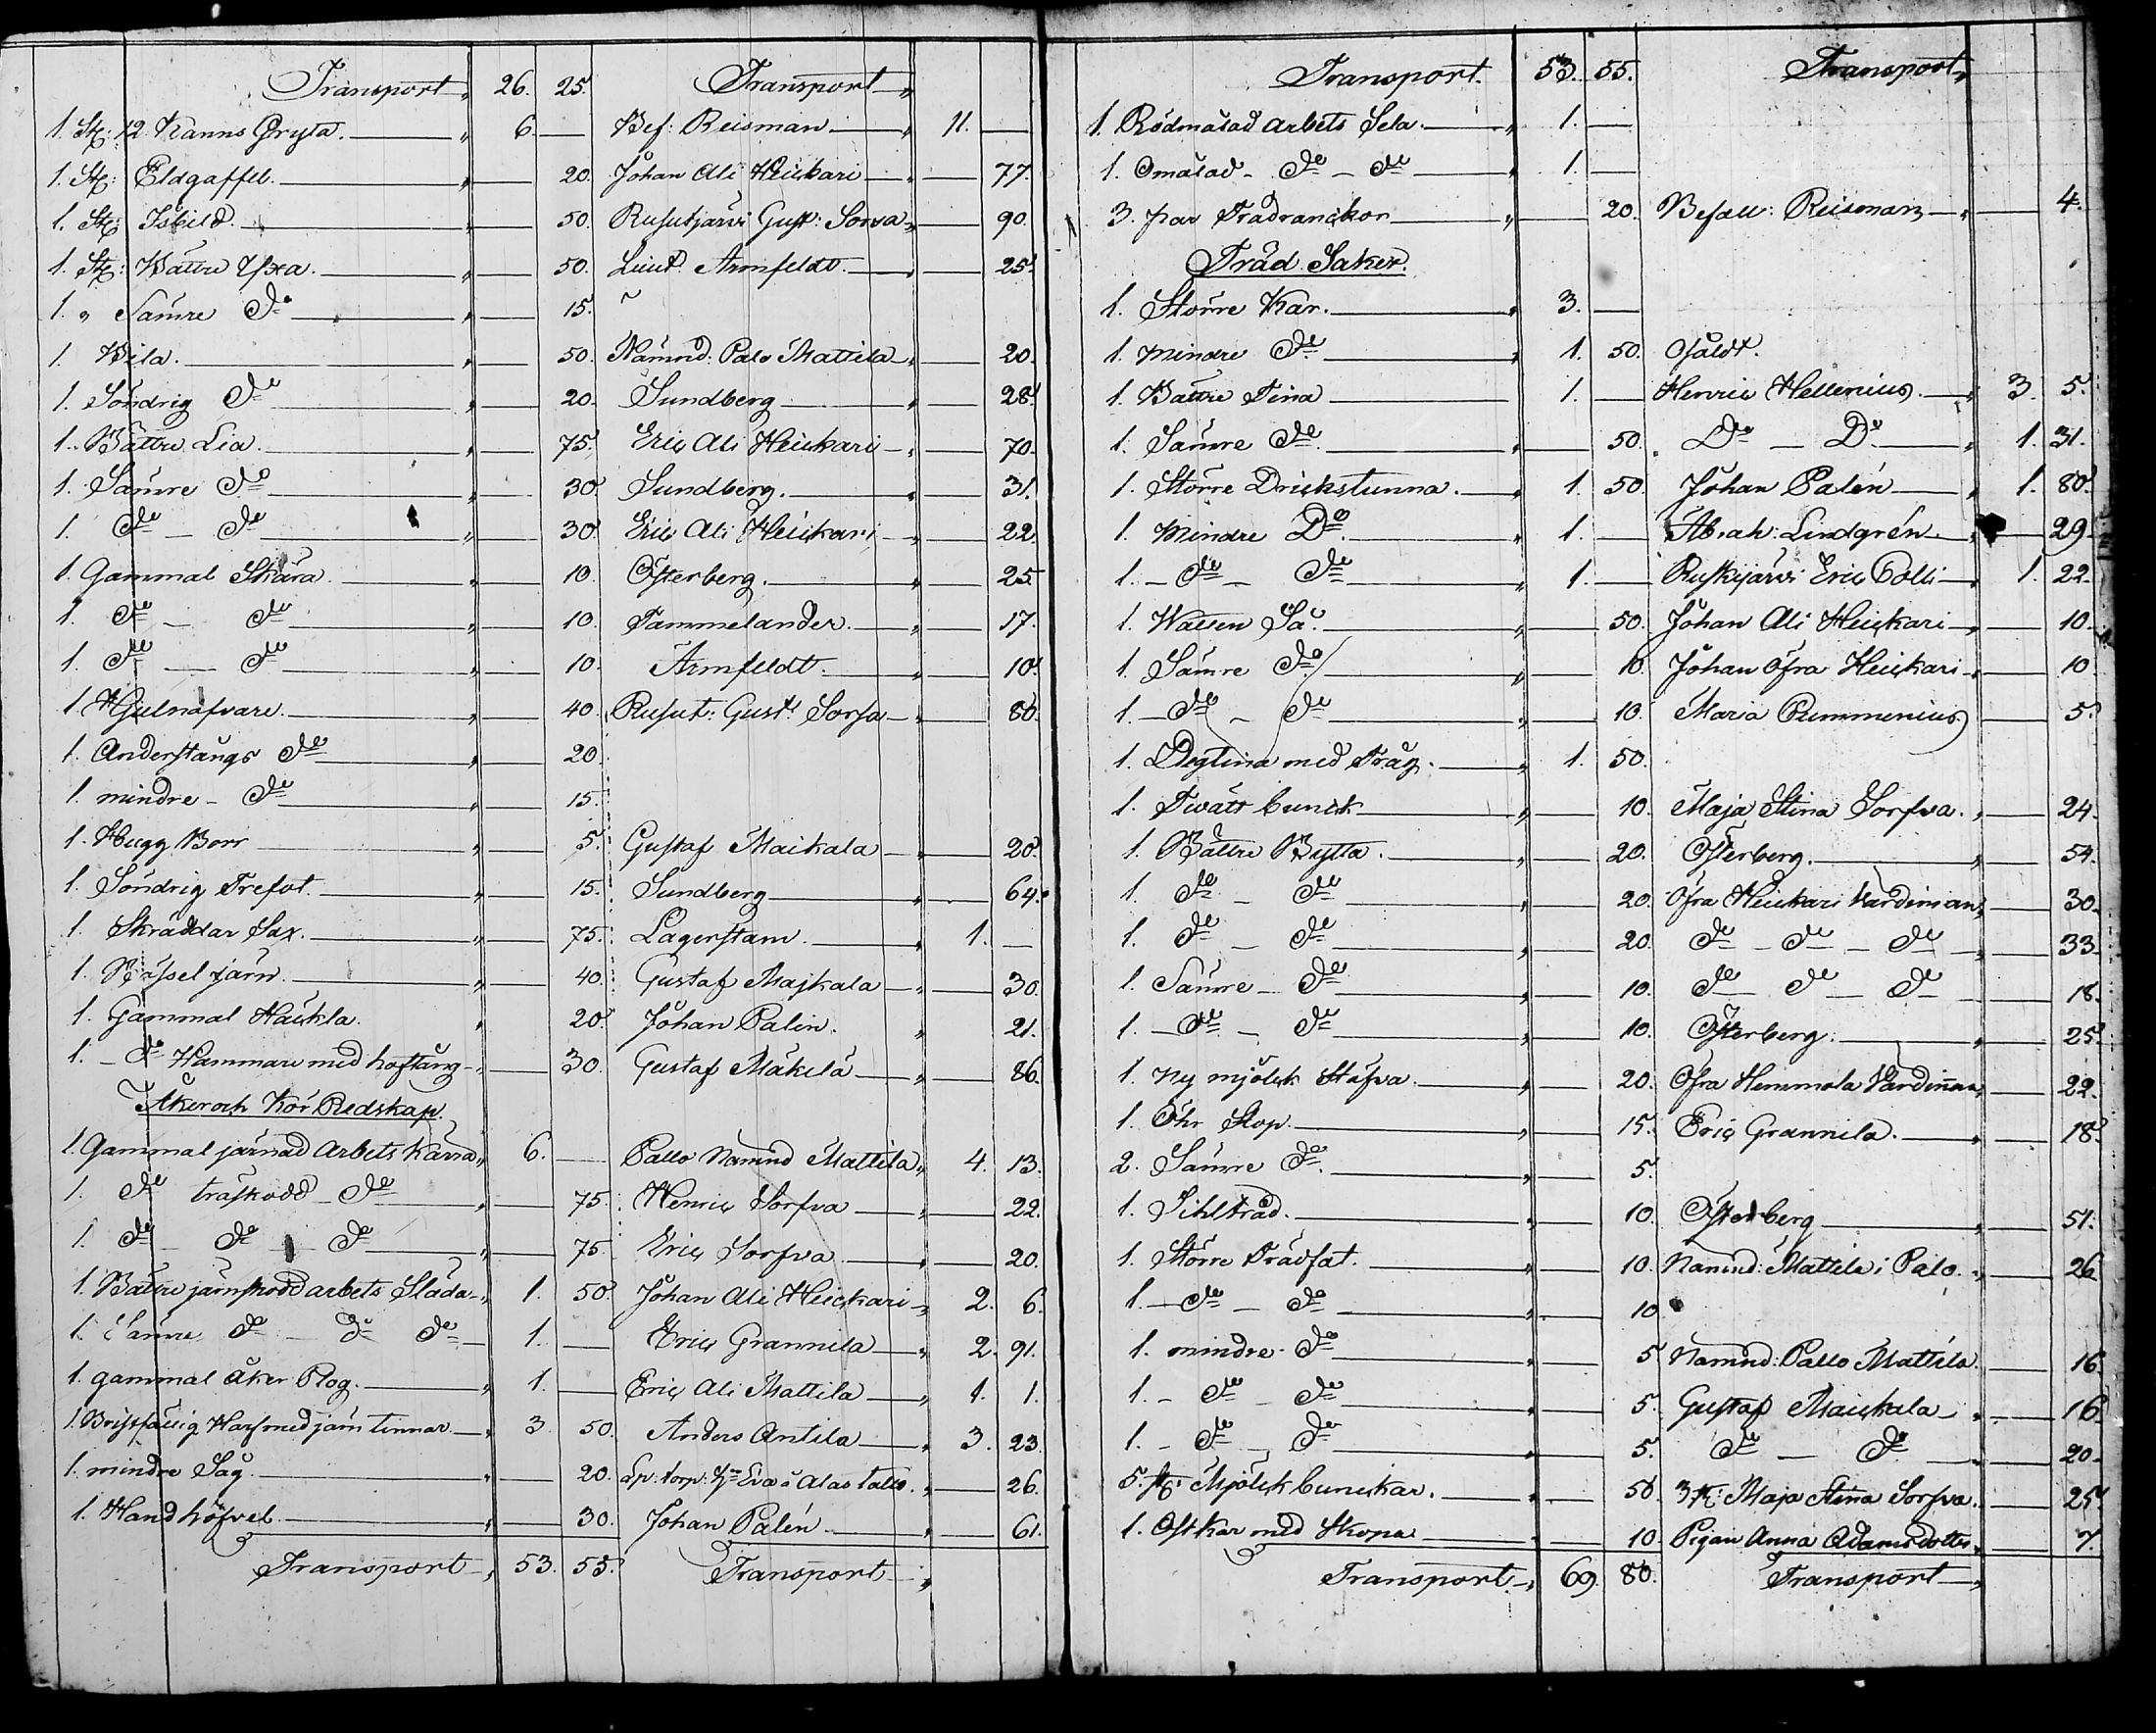 Transport 26. 25. Transport
1. St: 12 Kanns Gryta. 6. — Bef: Reisman 11. —
1. St: Eldgaffel. — 20. Johan Ali Heickari — 77.
1. St: Isbild. — 50. Rusutjärvi Gust: Sorva — 90.
1. St: Bättre Yxa. — 50. Lieut. Armfeldt. — 25.
1. " Sämre Do — 15.
1. Bila. — 50. Nämnd: Palo Mattila — 20.
1. Söndrig Do — 20. Sundberg — 28.
1. Bättre Lia. — 75. Eric Ali Heickari — 70.
1. Sämre Do — 30. Sundberg. — 31.
1. Do — Do — 30. Eric Ali Heickari — 22.
1. Gammal Skära — 10. Österberg. — 25.
1. Do — Do — 10. Tammelander. — 17.
1. Do — Do — 10. Armfeldt. — 10.
1. Hjulnafvare. — 40. Rusut: Gust: Sorfva — 80.
1. Anderstångs Do — 20.
1. mindre — Do — 15.
1. Hugg Borr — 5. Gustaf Maikala — 20.
1. Söndrig Trefot. — 15. Sundberg — 64.
1. Skräddar Sax. — 75. Lagerstam. 1. —
1. Bössel järn. — 40. Gustaf Majkala — 30.
1. Gammal Häckla. 20. Johan Palin. 21.
1. — Do Hammare med hoftång — 30. Gustaf Mäkelä — 86.
Åker och Kör Redskap.
1. Gammal järnad Arbets Kärra 6. — Pallo Nämnd Mattila 4. 13.
1. Do träskodd Do — 75. Henric Sorfva — 22.
1. Do — Do — Do — 75. Eric Sorfva — 20.
1. Bättre järnskodd arbets Släda 1. 50. Johan Ali Heickari 2. 6.
1. Sämre Do — Do Do 1. — Eric Grannila 2. 91.
1. gammal Åker Plog. 1. — Eric Ali Mattila 1. 1.
1. Bristfällig Harf med järn tinnar 3 50. Anders Antila 3. 23.
1. mindre Såg. — 20. Sp: torp: Eva å Alastalo. — 26.
1. Hand höfvel — 30. Johan Palén — 61.
Transport 53. 55. Transport
Transport. 53. 55. Transport
1. Rödmålad arbets Sela. 1. —
1. Omålad — Do — Do 1. —
3. par Trädranckor — 20. Befall: Reisman — 4.
Träd Saker.
1. Större Kar. 3. —
1. mindre Do 1. 50. Osåldt.
1. Bättre Tina 1. — Henric Hellenius. 3. 5.
1. Sämre Do — 50. Do — Do 1. 31.
1. Större Drickstunna. 1. 50. Johan Palén 1. 80.
1. Mindre Do 1. — Abrah: Lindgrén — 29.
1. — Do — Do 1. — Ruskijärvi Eric Colli 1. 22.
1. Watten Så. — 50. Johan Ali Heickari — 10.
1. Sämre Do — 10. Johan Öfra Heickari — 10.
1. — Do — Do 10. Maria Pummenius — 5.
1. Degtina med Tråg. 1. 50.
1. Twätt bunck — 10. Maja Stina Sorfva. — 24.
1. Bättre Bytta. — 20. Österberg. — 54.
1. Do — Do — 20. Öfra Heickari Värdinnan — 30.
1. Do — Do — 20. Do — Do — Do — 33.
1. Sämre — Do — 10. Do Do Do — 18.
1. — Do — Do — 10. Österberg. — 25.
1. Ny mjölck Stäfva. — 20. Öfra Hemmola Värdinnan — 22.
1. Öhr Stop. — 15. Eric Grannila. — 18.
2. Sämre Do. — 5.
1. Sihltråd. — 10. Österberg — 51.
1. Större Trädfat. — 10. Nämnd: Mattila i Palo. — 26.
1. — Do — Do — 10.
1. mindre Do — 5 Nämnd: Pallo Mattila — 16.
1. — Do — Do — 5. Gustaf Maickala — 16.
1. — Do — Do — 5. Do — Do — 20.
5. st: Mjölck bunckar. — 50. 3 st: Maja Stina Sorfva. — 25.
1. Ostkar med Skopa — 10. Pigan Anna Adamsdotter — 7.
Transport 69. 80. Transport